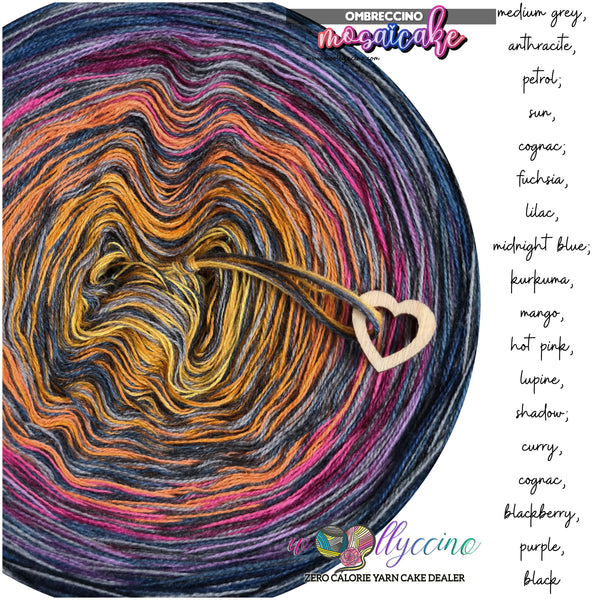 OMBRECCINO
mosaicake
www.woollyccino.com
medium grey,
anthracite,
petrol;
sun,
cognac;
fuchsia,
lilac,
midnight blue;
kurkuma,
mango,
hot pink,
lupine,
shadow;
curry,
cognac,
blackberry,
purple,
black
woollyccino
ZERO CALORIE YARN CAKE DEALER